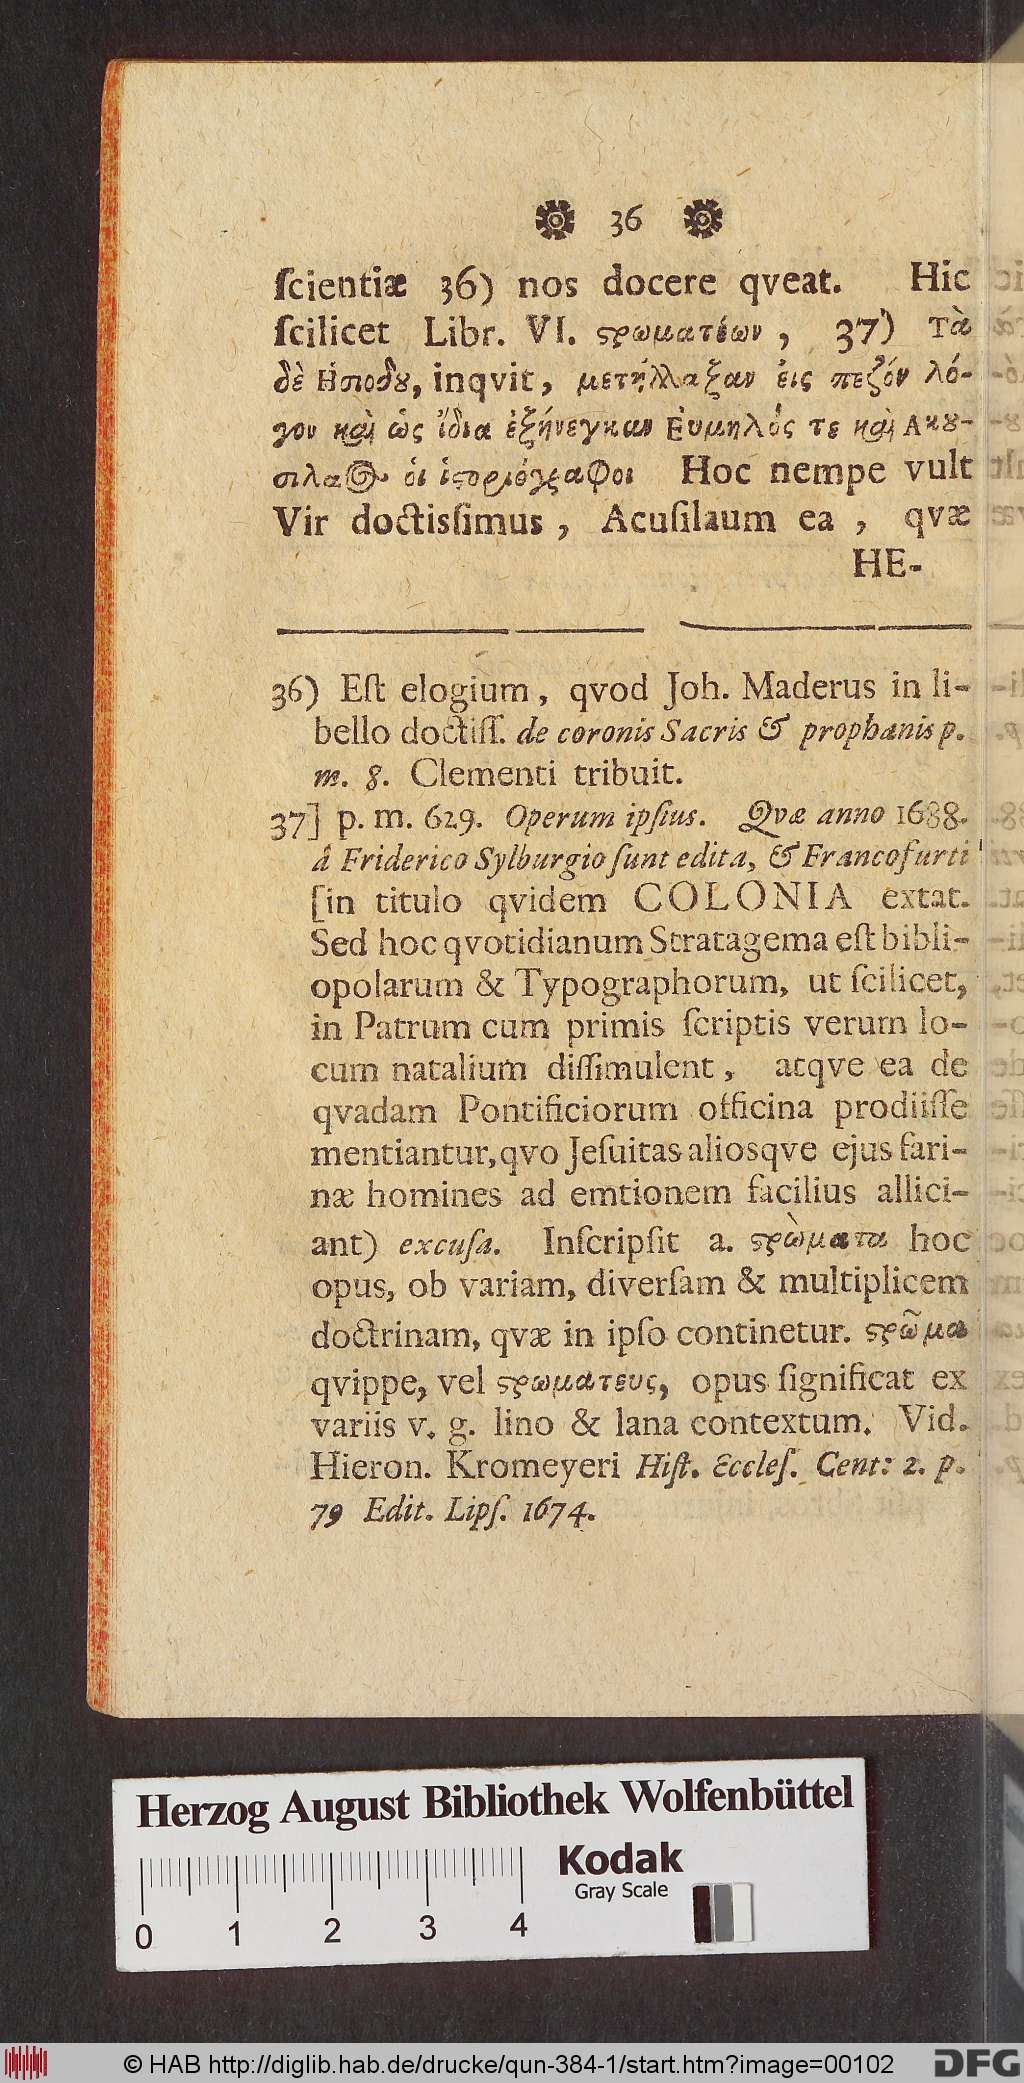 36
ſcientiæ 36) nos docere qveat. Hic
ſcilicet Libr. VI. ϛρωματέων, 37) Τὰ
δὲ Ἡσιοδȣ, inqvit, μετήλλαξαν ἐις πεζόν λό-
γον καὶ ὡς ἴδια ἐξήνεγκαν Ἐυμηλός τε καὶ Ακȣ-
σιλαος ὁι ἱϛοριόγραφοι Hoc nempe vult
Vir doctisſimus, Acuſilaum ea, qvæ
HE-
36) Eſt elogium, qvod Joh. Maderus in li-
bello doctiſſ. de coronis Sacris & prophanis p.
m. 8. Clementi tribuit.
37] p. m. 629. Operum ipſius. Qvæ anno 1688.
â Friderico Sylburgio ſunt edita, & Francofurti
[in titulo qvidem COLONIA extat.
Sed hoc qvotidianum Stratagema eſt bibli-
opolarum & Typographorum, ut ſcilicet,
in Patrum cum primis ſcriptis verum lo-
cum natalium diſſimulent, atqve ea de
qvadam Pontificiorum officina prodiiſſe
mentiantur, qvo Jeſuitas aliosqve ejus fari-
næ homines ad emtionem facilius allici-
ant) excuſa. Inſcripſit a. ϛρὼματα hoc
opus, ob variam, diverſam & multiplicem
doctrinam, qvæ in ipſo continetur. ϛρῶμα
qvippe, vel ϛρωματευς, opus ſignificat ex
variis v. g. lino & lana contextum. Vid.
Hieron. Kromeyeri Hiſt. Eccleſ. Cent: 2. p.
79 Edit. Lipſ. 1674.
Herzog August Bibliothek Wolfenbüttel
Kodak
Gray Scale
0 1 2 3 4
© HAB http://diglib.hab.de/drucke/qun-384-1/start.htm?image=00102
DFG